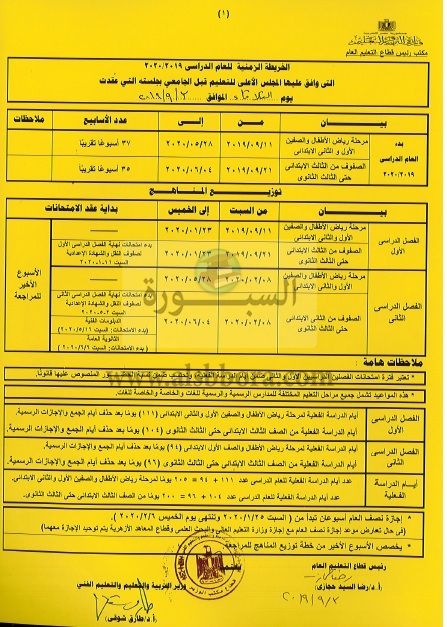 (١)
مكتب رئيس قطاع التعليم العام
الخريطة الزمنية للعام الدراسى ٢٠٢٠/٢٠١٩
التى وافق عليها المجلس الأعلى للتعليم قبل الجامعي بجلسته التي عقدت
يوم الثلاثاء الموافق ٢٠١٩/٩/٣
بيان من إلى عدد الأسابيع ملاحظات
بدء العام الدراسي ٢٠٢٠/٢٠١٩
مرحلة رياض الأطفال والصفين الأول والثانى الابتدائى ٢٠١٩/٠٩/١١ ٢٠٢٠/٠٥/٢٨ ٣٧ أسبوعًا تقريبًا
الصفوف من الثالث الابتدائى حتى الثالث الثانوى ٢٠١٩/٠٩/٢١ ٢٠٢٠/٠٦/٠٤ ٣٥ أسبوعًا تقريبًا
توزيع المناهج
بيان من السبت إلى الخميس بداية عقد الامتحانات
الفصل الدراسى الأول
مرحلة رياض الأطفال والصفين الأول والثانى الابتدائى ٢٠١٩/٠٩/١١ ٢٠٢٠/٠١/٢٣
الصفوف من الثالث الابتدائى حتى الثالث الثانوى ٢٠١٩/٠٩/٢١ ٢٠٢٠/٠١/٢٣
بدء امتحانات نهاية الفصل الدراسى الأول
لصفوف النقل والشهادة الإعدادية
الأسبوع الأخير للمراجعة
الفصل الدراسى الثانى
مرحلة رياض الأطفال والصفين الأول والثانى الابتدائى ٢٠٢٠/٠٢/٠٨ ٢٠٢٠/٠٥/٢٨
الصفوف من الثالث الابتدائى حتى الثالث الثانوى ٢٠٢٠/٠٢/٠٨ ٢٠٢٠/٠٦/٠٤
بدء امتحانات نهاية الفصل الدراسى الثانى
لصفوف النقل والشهادة الإعدادية
الدبلومات الفنية
(بدء الامتحانات: السبت ٢٠٢٠/٥/١٦)
الثانوية العامة
(بدء الامتحانات: السبت ٢٠٢٠/٦/٦)
السبورة
www.alsbbora.com
ملاحظات هامة:
* هذه المواعيد تشمل جميع مراحل التعليم المختلفة للمدارس الرسمية والرسمية للغات والخاصة والخاصة للغات.
الفصل الدراسى الأول
أيام الدراسة الفعلية لمرحلة رياض الأطفال والصفين الأول والثانى الابتدائى (١١١) يومًا بعد حذف أيام الجمع والإجازات الرسمية.
أيام الدراسة الفعلية من الصف الثالث الابتدائى حتى الثالث الثانوى (١٠٤) يومًا بعد حذف أيام الجمع والإجازات الرسمية.
الفصل الدراسى الثانى
أيام الدراسة الفعلية لمرحلة رياض الأطفال والصف الأول والثانى الابتدائى (٩٤) يومًا بعد حذف أيام الجمع والإجازات الرسمية.
أيام الدراسة الفعلية من الصف الثالث الابتدائى حتى الثالث الثانوى (٩٦) يومًا بعد حذف أيام الجمع والإجازات الرسمية.
أيام الدراسة الفعلية
عدد أيام الدراسة الفعلية للعام الدراسى عدد ١١١ + ٩٤ = ٢٠٥ يومًا لمرحلة رياض الأطفال والصفين الأول والثانى الابتدائى.
عدد أيام الدراسة الفعلية للعام الدراسى عدد ١٠٤ + ٩٦ = ٢٠٠ يومًا من الصف الثالث الابتدائى حتى الثالث الثانوى.
* إجازة نصف العام أسبوعان تبدأ من (السبت ٢٠٢٠/١/٢٥ وتنتهى يوم الخميس ٢٠٢٠/٢/٦)
(فى حال تعارض موعد إجازة نصف العام مع إجازة وزارة التعليم العالى والبحث العلمى وقطاع المعاهد الأزهرية يتم توحيد الإجازة معهما)
* يخصص الأسبوع الأخير من خطة توزيع المناهج للمراجعة
رئيس قطاع التعليم العام
أ.د/رضا السيد حجازى
٢٠١٩/٩/٣
وزير التربية والتعليم والتعليم الفني
أ.د/طارق شوقى